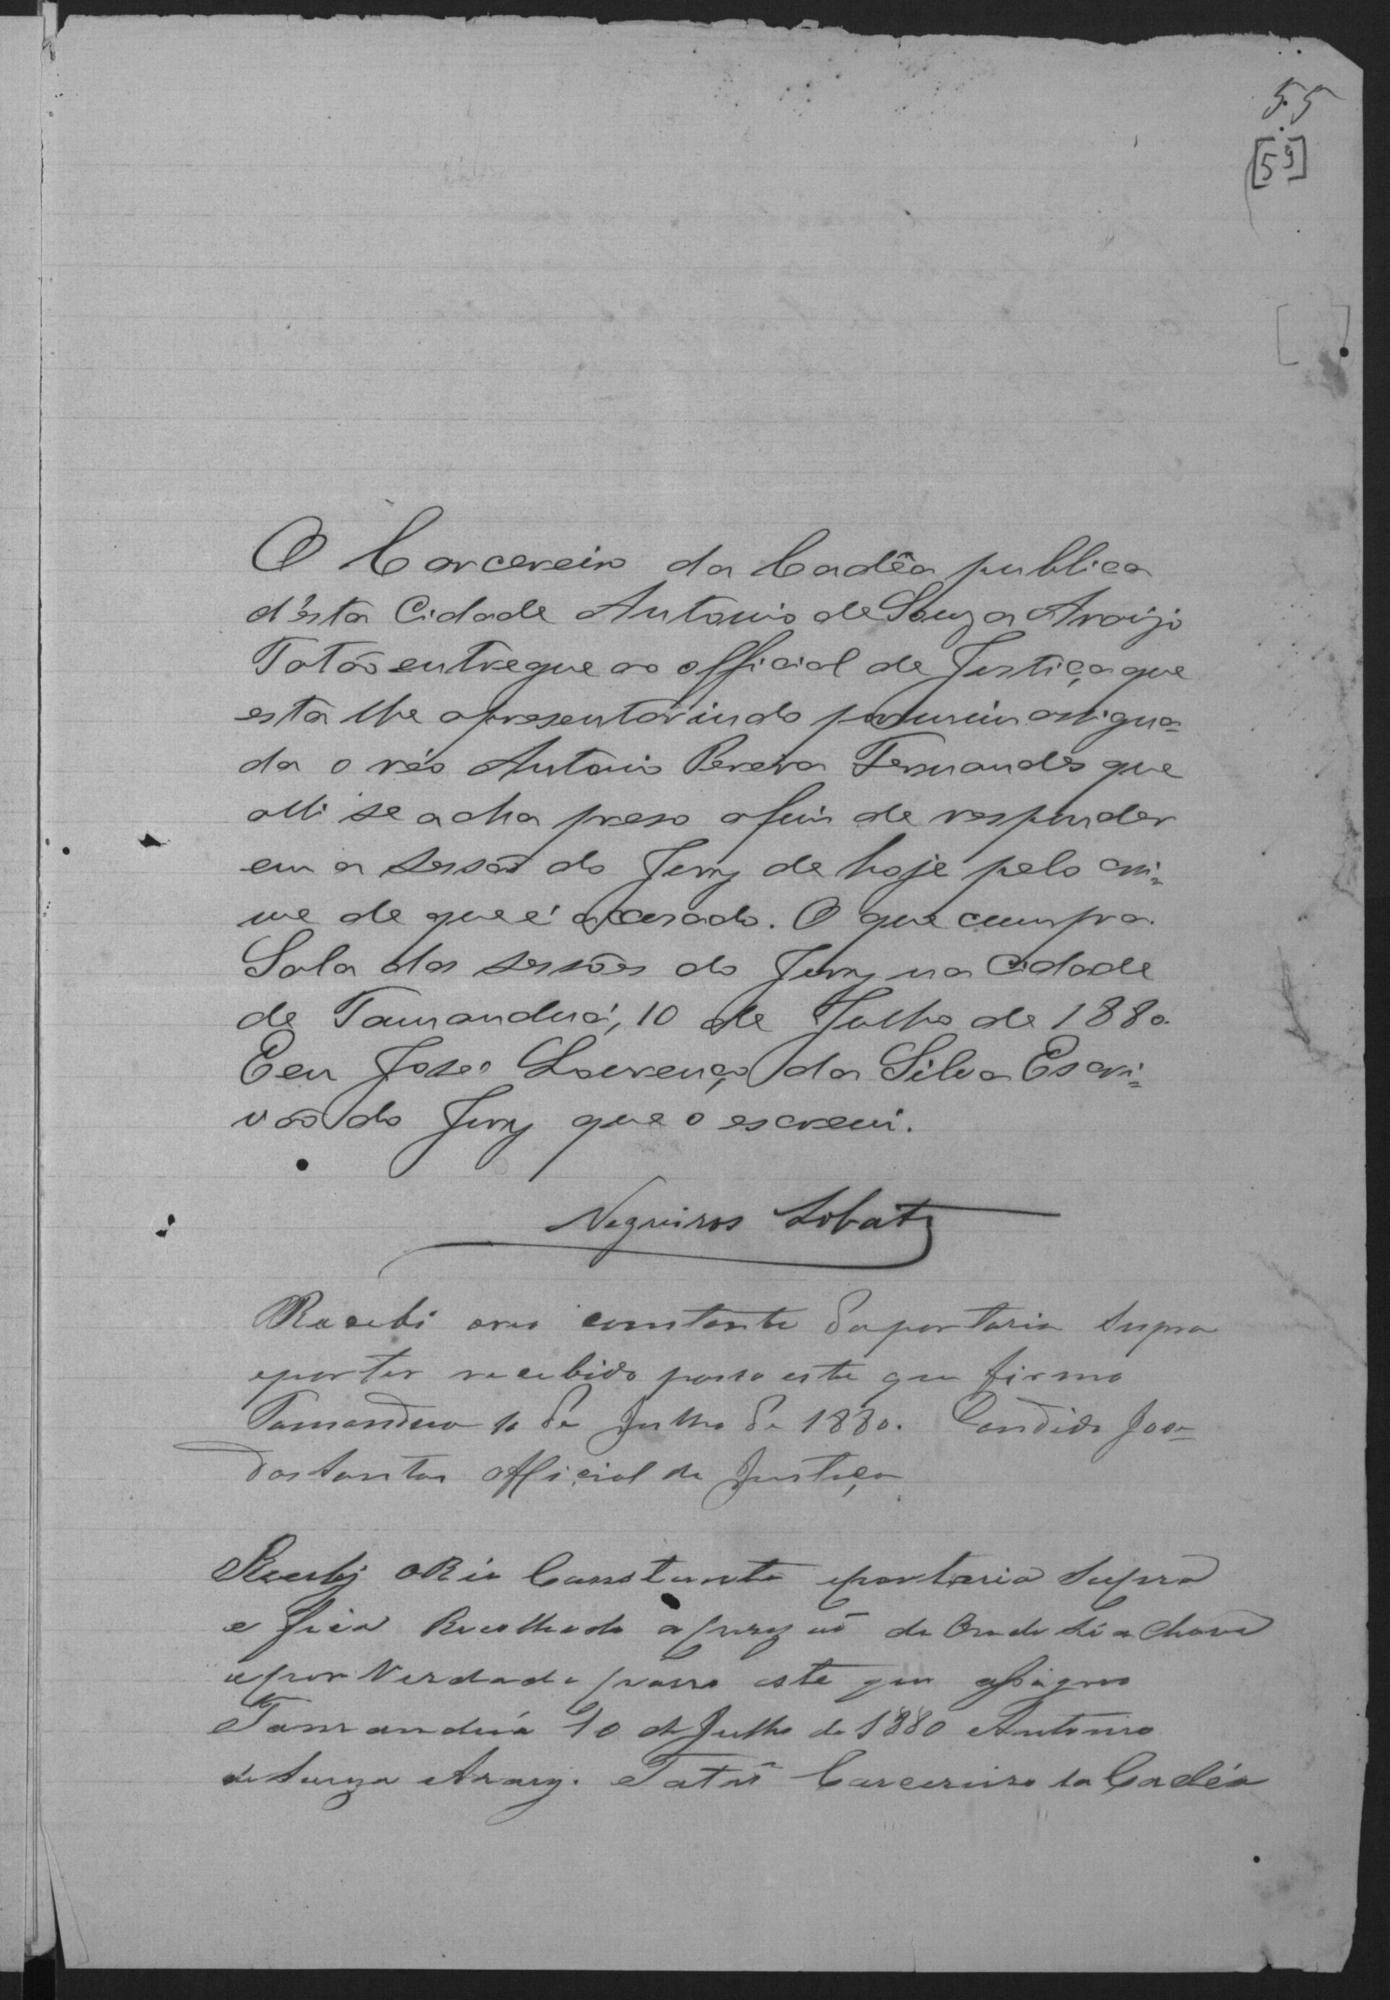 55
[59]
O Carcereiro da Cadêa publica
d'ésta Cidade Antonio de Souza Araujo
Totão entregue ao official de Justiça que
esta lhe apresentar indo por mim assigna=
da o réo Antonio Pereira Fernandes que
alli se acha preso afim de responder
em a sessão do Jury de hoje pelo cri=
me de que é accusado. O que cumpra.
Sala das sessões do Jury na Cidade
de Tamanduá, 10 de Julho de 1880.
E eu José Lourenço da Silva Escri=
vão do Jury que o escrevi.
Negreiros Lobato
Recebi oreo constante da portaria supra
epor ter recebido passo este que firmo
Tamandua 10 de Julho de 1880. Candido Jose=
dos Santos official de Justiça
Recebj o Réo Constante aportaria Supra
e fica Recolhido a prizaõ de Onde
epor Verdade passo este que assigno
Tamanduá 10 de Julho de 1880 Antonio
de Souza Arauj. Totaõ Carcereiro da Cadéa